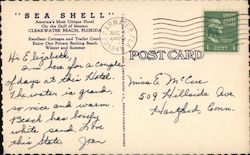 "SEA SHELL"
America's Most Unique Hotel
On the Gulf of Mexico
CLEARWATER BEACH, FLORIDA
Excellent Cottages and Trailer Court
Enjoy Our Private Bathing Beach
Winter and Summer
CLEARWATER
AUG
POST CARD
Hi Elizabeth,
Am here for a couple
of days at this Hotel.
The water is grand,
so nice and warm.
Beach has lovely
white sand. Love
this State. Joan
Miss E. McCue
509 Hillside Ave
Hartford, Conn.